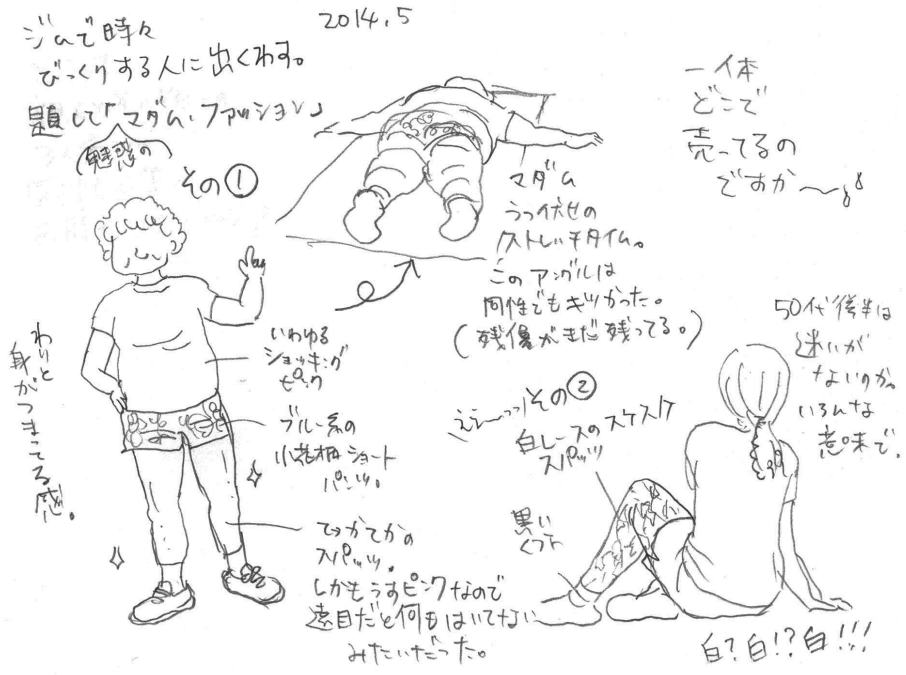 2014.5
ジムで時々
びっくりする人に出くわす。
題して「マダム・ファッション」
(魅惑の)
その①
一体
どこで
売ってるの
ですか〜
マダム
うつ伏せの
ストレッチタイム。
このアングルは
同性でもキツかった。
(残像がまだ残ってる。)
わりと
身がつまってる感。
いわゆる
ショッキング
ピンク
ブルー系の
小花柄ショート
パンツ。
てかてかの
スパッツ。
しかもうすピンクなので
遠目だと何もはいてない
みたいだった。
ええーっっ
その②
白レースのスケスケ
スパッツ
黒い
くつ下
50代後半は
迷いが
ないのか。
いろんな
意味で。
白?白!?白!!!